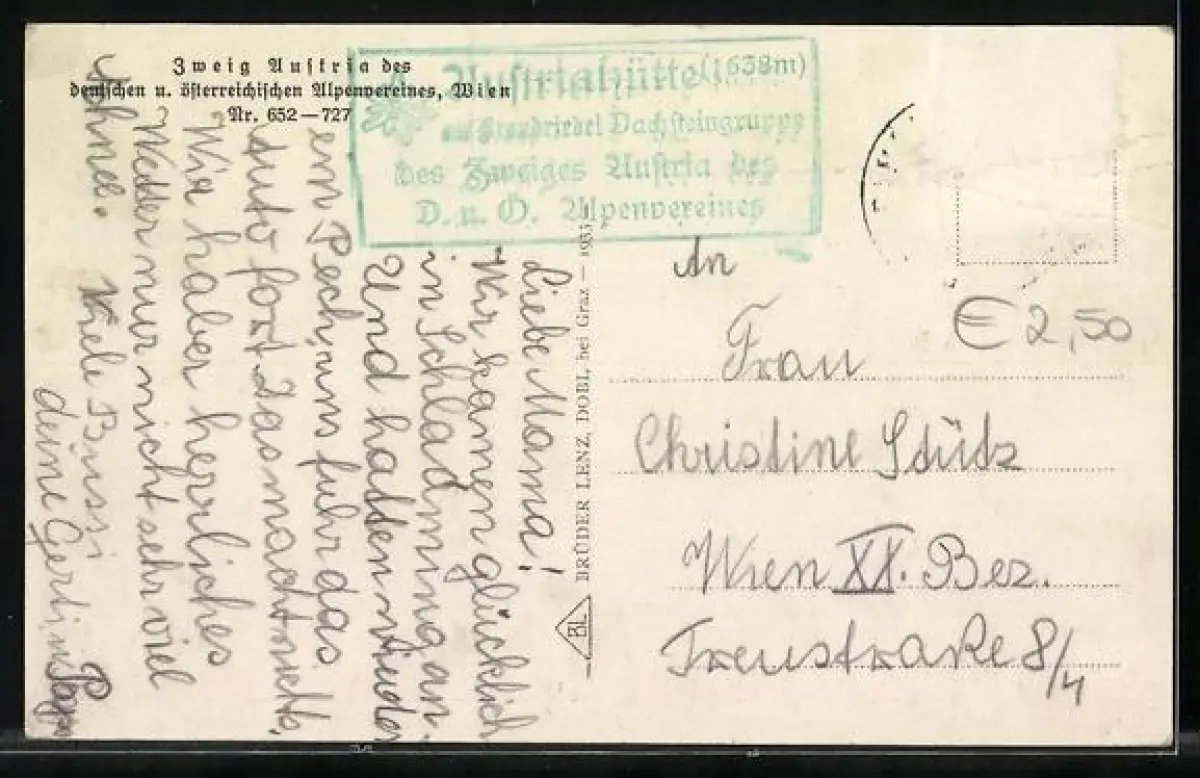 Zweig Austria des
deutschen u. österreichischen Alpenvereines, Wien
Nr. 652—727
Austriahütte (1638m)
am Brandriedel Dachsteingruppe
des Zweiges Austria des
D. u. Ö. Alpenvereines
Liebe Mama!
Wir kamen glücklich
in Schladming an.
Und hatten wieder
ein Pech, uns fuhr das
Auto fort. Das macht nichts.
Wir haben herrliches
Weder nur nicht sehr viel
Schnee. Viele Bussi
deine Gerti u. Papa
BRÜDER LENZ, DOBL bei Graz — 1935
BL
An
Frau
€ 2,50
Christine Stütz
Wien XX. Bez.
Treustraße 8/4